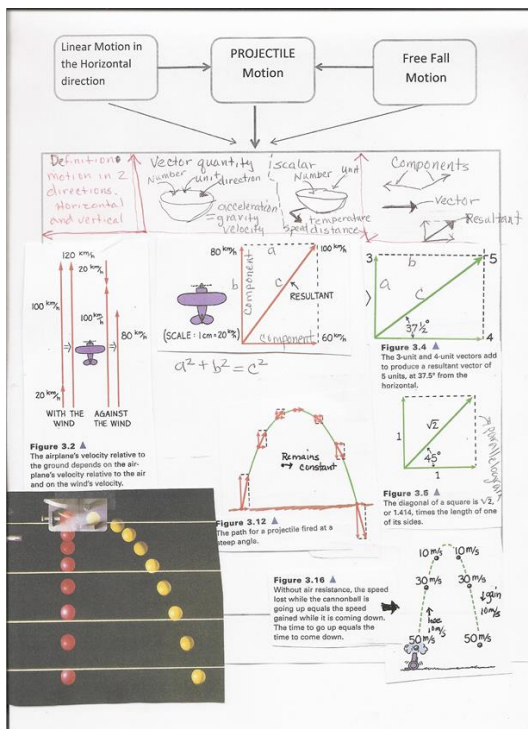 Linear Motion in
the Horizontal
direction
PROJECTILE
Motion
Free Fall
Motion
Definition:
motion in 2
directions.
Horizontal
and vertical
Vector quantity
Number unit direction
acceleration
= gravity
velocity
scalar
Number unit
temperature
speed distance
Components
vector
Resultant
120 km/h
20 km/h
100 km/h
100 km/h
80 km/h
20 km/h
WITH THE WIND
AGAINST THE WIND
Figure 3.2
The airplane's velocity relative to
the ground depends on the air-
plane's velocity relative to the air
and on the wind's velocity.
80 km/h
a
100 km/h
b
component
c
RESULTANT
(SCALE: 1cm=20 km/h)
component
60 km/h
a² + b² = c²
3
b
5
a
c
37½°
4
Figure 3.4
The 3-unit and 4-unit vectors add
to produce a resultant vector of
5 units, at 37.5° from the
horizontal.
1
√2
45°
1
parallelogram
Figure 3.5
The diagonal of a square is √2,
or 1.414, times the length of one
of its sides.
Remains
constant
Figure 3.12
The path for a projectile fired at a
steep angle.
Figure 3.16
Without air resistance, the speed
lost while the cannonball is
going up equals the speed
gained while it is coming down.
The time to go up equals the
time to come down.
10 m/s
10 m/s
30 m/s
30 m/s
gain
10 m/s
10 m/s
50 m/s
50 m/s